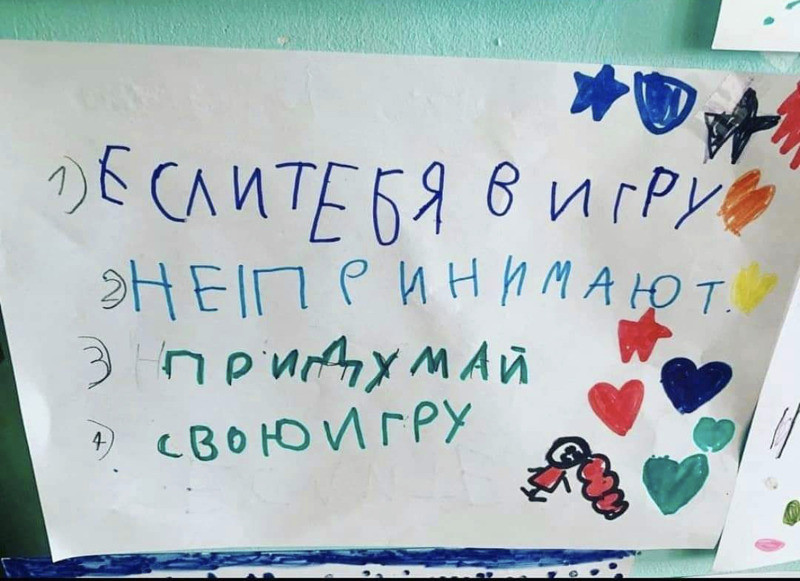 1) ЕСЛИ ТЕБЯ В ИГРУ
2) НЕ ПРИНИМАЮТ.
3) ПРИДУМАЙ
4) СВОЮ ИГРУ